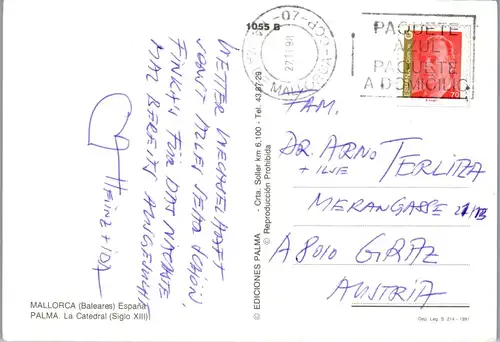 1055 B
07-CCP-
MALLORCA
27 11 98
PAQUETE
AZUL
PAQUETE
A DOMICILIO
70
WETTER WECHSELHAFT
SONST ALLES SEHR SCHÖN,
FINKA'S FÜR DAS NÄCHSTE
MAL BEREITS
HEINZ + IDA
MALLORCA (Baleares) España
PALMA. La Catedral (Siglo XIII)
© EDICIONES PALMA - Crta. Soller km 6,100 - Tel. 43 87 29
© Reproducción Prohibida
FAM.
DR. ARNO TERLITZA
+ ILSE
MERANGASSE
A 8010 GRAZ
AUSTRIA
Dep. Leg. B. 214 - 1991